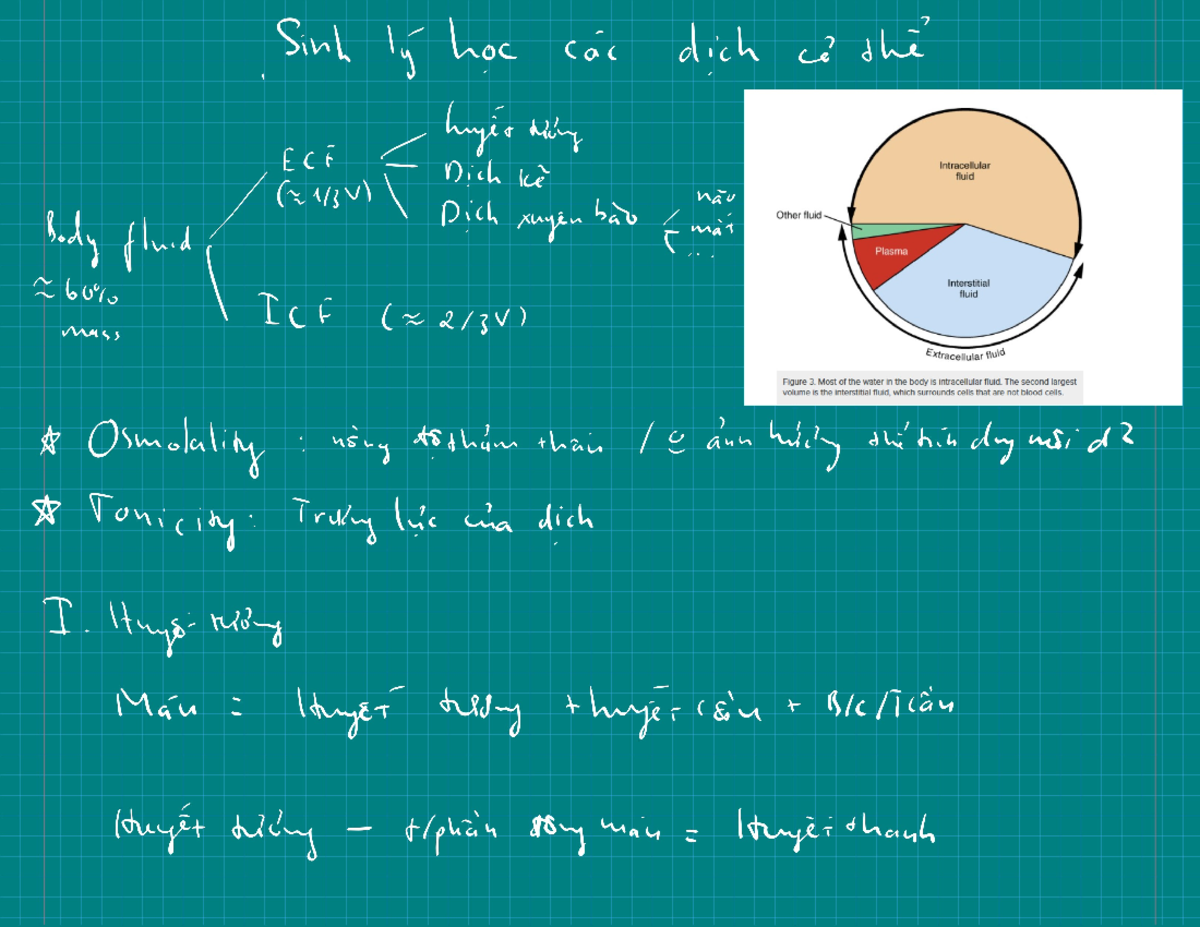 Sinh lý học các dịch cơ thể
Body fluid
≈ 60%
mass
ECF
(≈ 1/3V)
huyết tương
Dịch kẽ
Dịch xuyên bào
não
mắt
...
ICF (≈ 2/3V)
Intracellular
fluid
Other fluid
Plasma
Interstitial
fluid
Extracellular fluid
Figure 3. Most of the water in the body is intracellular fluid. The second largest
volume is the interstitial fluid, which surrounds cells that are not blood cells.
☆ Osmolality : nồng độ thẩm thấu / ảnh hưởng
☆ Tonicity: Trương lực của dịch
I. Huyết tương
Máu = Huyết tương + huyết cầu + B/c/Tcầu
Huyết tương – t/phần đông máu = Huyết thanh